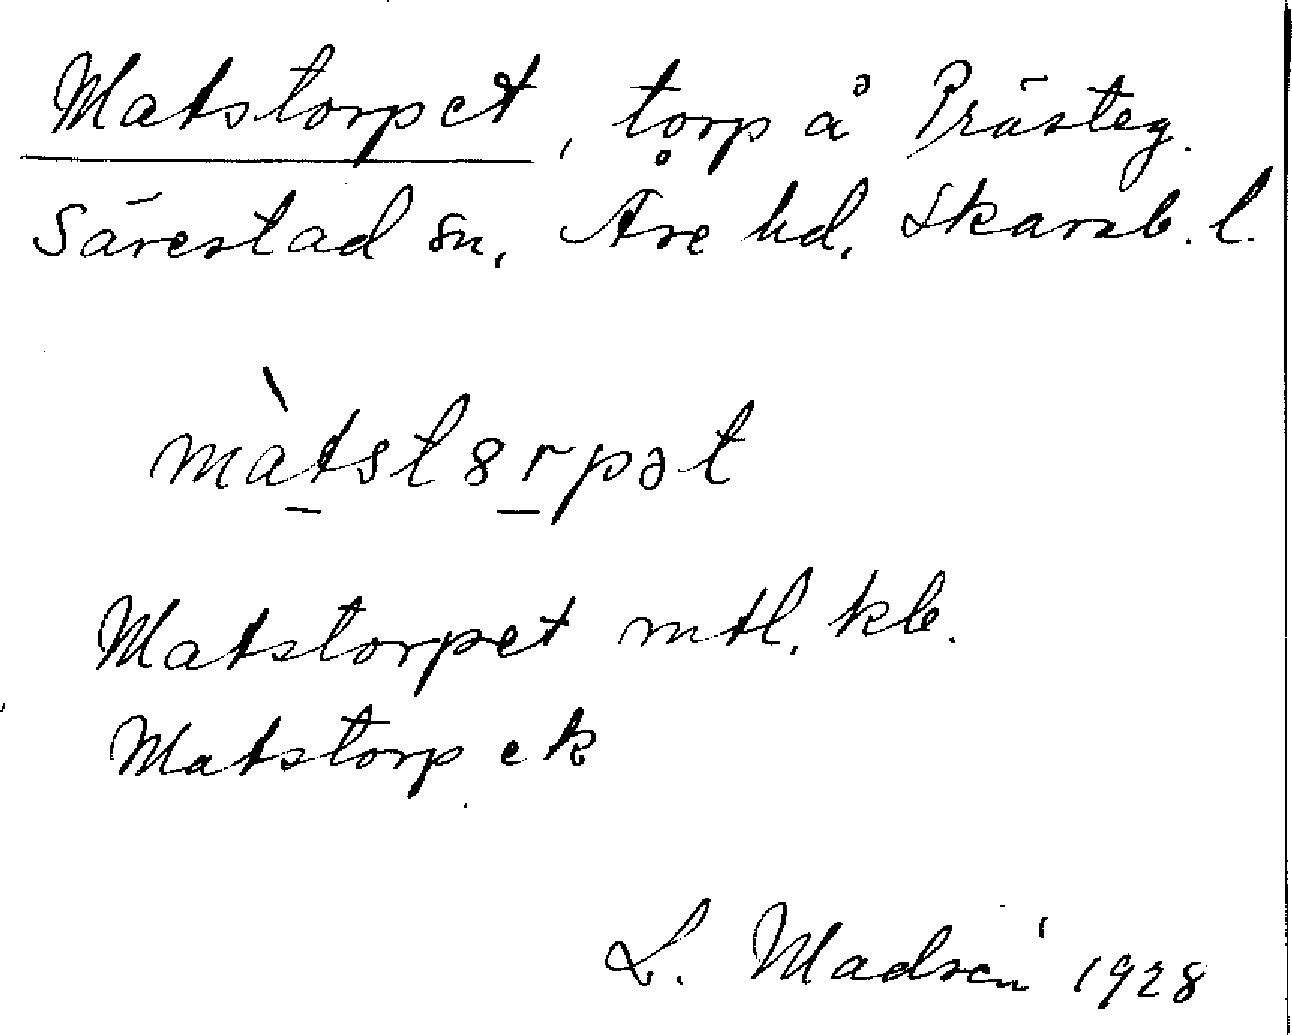 Matstorpet, torp å Prästeg.
Särestad sn, Åre hd, Skarab. l.
màtst8rpət
Matstorpet mtl, kb.
Matstorp ek
L. Madsén 1928